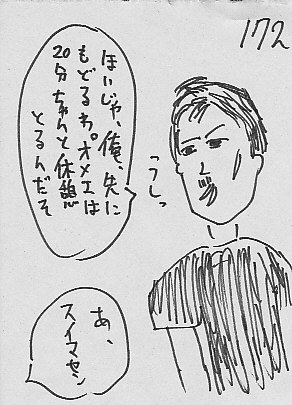 172
ほいじゃ、俺、先に
もどるわ。オメエは
20分ちゃんと休憩
とるんだぞ
うしっ
あ、
スイマセン